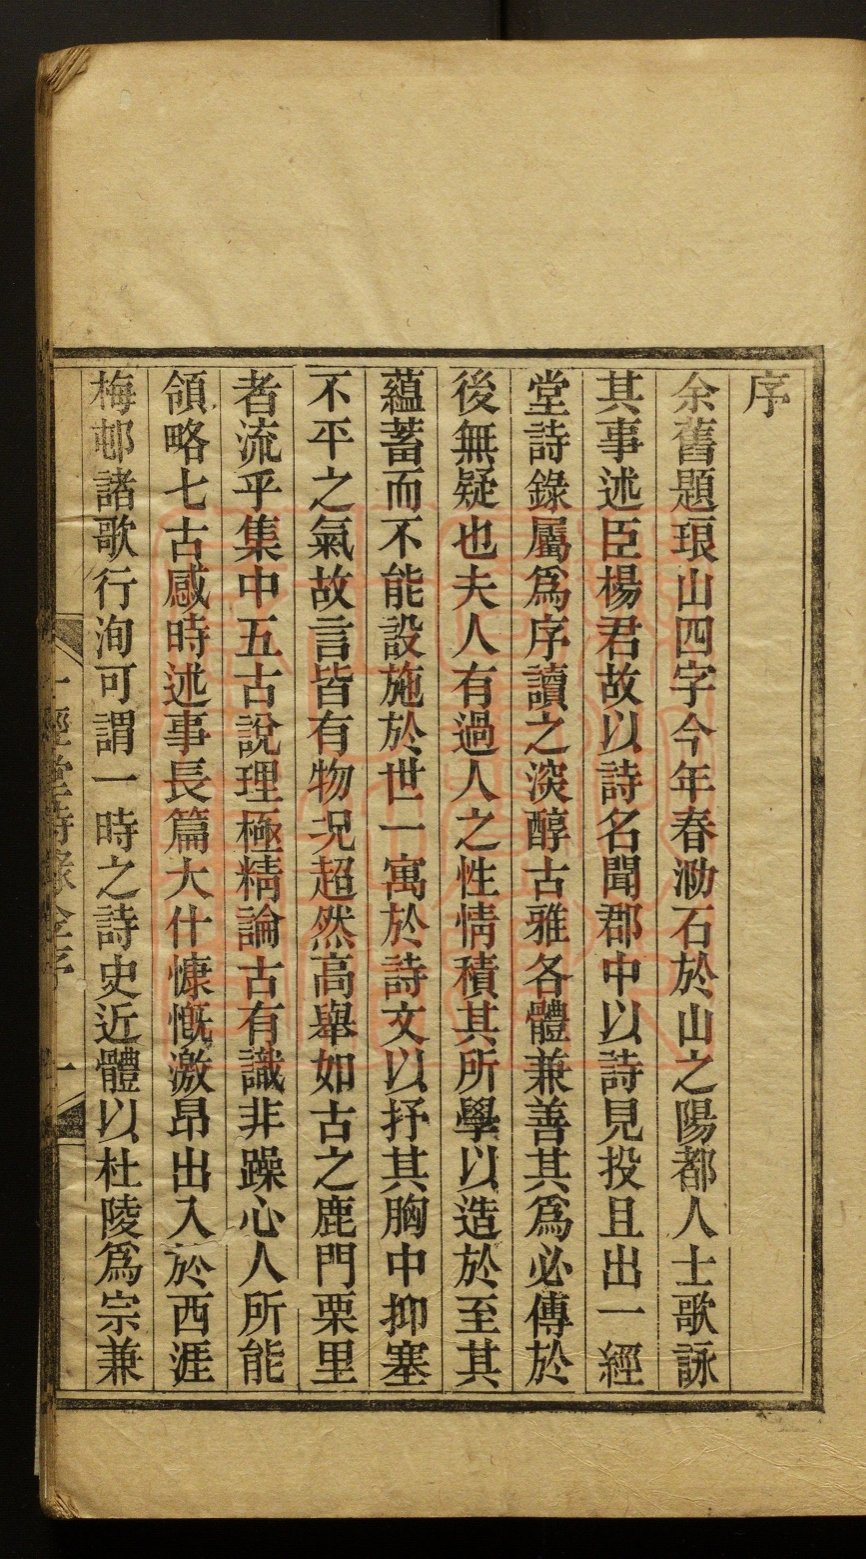 序
余舊題琅山四字今年春泐石於山之陽都人士歌詠
其事述臣楊君故以詩名聞郡中以詩見投且出一經
堂詩錄屬爲序讀之淡醇古雅各體兼善其爲必傳於
後無疑也夫人有過人之性情積其所學以造於至其
蘊蓄而不能設施於世一寓於詩文以抒其胸中抑塞
不平之氣故言皆有物况超然高舉如古之鹿門栗里
者流乎集中五古說理極精論古有識非躁心人所能
領略七古感時述事長篇大什慷慨激昂出入於西涯
梅邨諸歌行洵可謂一時之詩史近體以杜陵爲宗兼
一經堂詩錄 序 一